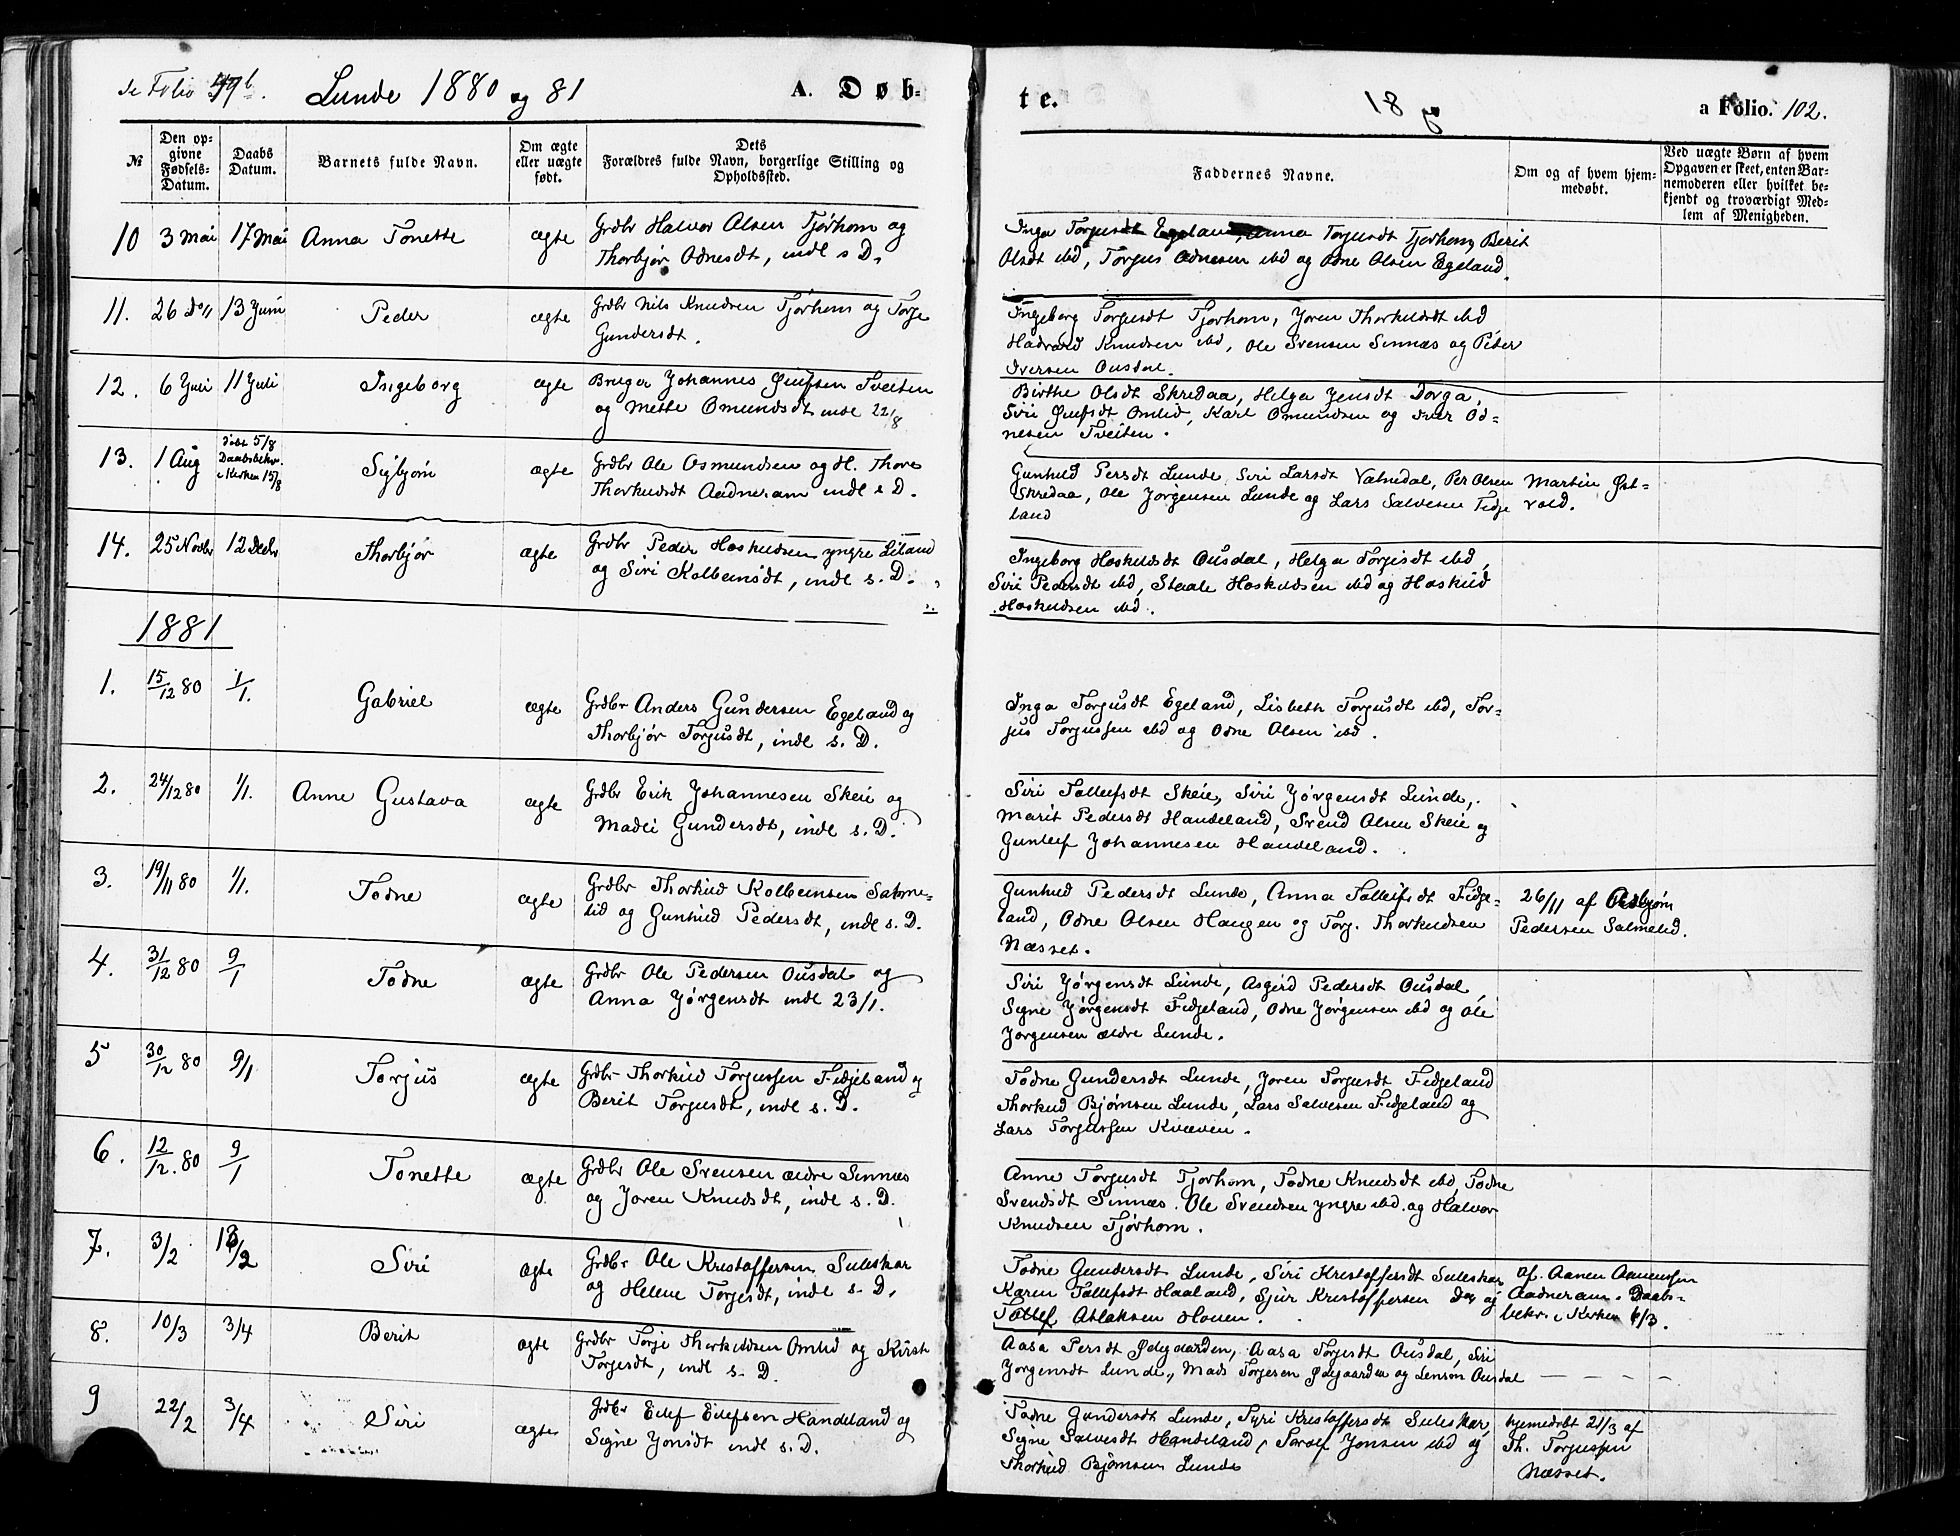 de Folio 99b. Lunde 1880 og 81 A. Døb-
te. 18 a Folio. 102.
№
Den op-
givne
Fødsels-
Datum.
Daabs
Datum.
Barnets fulde Navn.
Om ægte
eller uægte
født.
Dets
Forældres fulde Navn, borgerlige Stilling og
Opholdssted.
Faddernes Navne.
Om og af hvem hjem-
medøbt.
Ved uægte Børn af hvem
Opgaven er skeet, enten Bar-
nemoderen eller hvilket be-
kjendt og troværdigt Med-
lem af Menigheden.
10 3 Mai 17 Mai Anna Tonette ægte
Grdbr Halvor Olsen Tjørhom og
Thorbjør Odnesdt, indl s D.
Inga Torjusdt Egeland, Anna Torjusdt Tjørhom, Berit
Olsdt ibd, Torjus Odnesen ibd og Odne Olsen Egeland.
11. 26 Do 13 Juni Peder ægte
Grdbr Nils Knudsen Tjørhom og Torje
Gundersdt.
Ingeborg Torjusdt Tjørhom, Joren Thorkildsdt ibd
Hadvard Knudsen ibd, Ole Svensen Sinnes og Peder
Iversen Ousdal.
12. 6 Juli 11 Juli Ingeborg ægte
Bruger Johannes Ønufsen Tveiten
og Mette Omundsdt indl 22/8
Birthe Olsdt Skredaa, Helga Jensdt Dorga,
Siri Ønufsdt Omlid, Karl Omundsen og Iver Od-
nesen Tveiten.
13. 1 Aug
døbt 5/8
Daabsbekr.
i Kirken 15/8
Sigbjørn ægte
Grdbr Ole Osmundsen og H. Thore
Thorkildsdt Aadneram indl s D.
Gunhild Persdt Lunde, Siri Larsdt Vatnedal, Per Olsen
Skredaa, Ole Jørgensen Lunde og Lars Salvesen Fidje
land
Martin Øst-
vold.
14. 25 Novbr 12 Decbr Thorbjør ægte
Grdbr Peder Hoskuldsen yngre Liland
og Siri Kolbeinsdt, indl s. D.
Ingeborg Hoskuldsdt Ousdal, Helga Torjesdt ibd,
Siri Pedersdt ibd, Staale Hoskuldsen ibd og Hoskuld
Hoskuldsen ibd.
1881
1. 15/12 80 1/1. Gabriel ægte
Grdbr Anders Gundersen Egeland og
Thorbjør Torjusdt, indl s. D.
Inga Torjusdt Egeland, Lisbeth Torjusdt ibd, Tor-
jus Torjussen ibd og Odne Olsen ibd.
2. 24/12 80 1/1. Anne Gustava ægte
Grdbr Erik Johannesen Skeie og
Madli Gundersdt, indl s. D.
Siri Tollefsdt Skeie, Siri Jørgensdt Lunde,
Marit Pedersdt Handeland, Svend Olsen Skeie og
Gunleif Johannesen Handeland.
3. 19/11 80 1/1. Todne ægte
Grdbr Thorkild Kolbeinsen Salme-
lid og Gunhild Pedersdt, indl s. D.
Gunhild Pedersdt Lunde, Anna Tolleifsdt Fidje-
land, Odne Olsen Haugen og Torj. Thorkildsen
Næsset.
26/11 af Asbjørn
Pedersen Salmelid.
4. 31/12 80 9/1 Todne ægte
Grdbr Ole Pedersen Ousdal og
Anna Jørgensdt indl 23/1.
Siri Jørgensdt Lunde, Asgird Pedersdt Ousdal,
Signe Jørgensdt Fidjeland, Odne Jørgensen ibd og Ole
Jørgensen ældre Lunde.
5 30/12 80 9/1 Torjus ægte
Grdbr Thorkild Torjussen Fidjeland og
Berit Torjusdt, indl s. D.
Todne Gundersdt Lunde, Joren Torjusdt Fidjeland
Thorkild Bjørnsen Lunde, Lars Salvesen Fidjeland og
Lars Torjussen Kvæven.
6. 12/12. 80 9/1 Tonette ægte
Grdbr Ole Svensen ældre Sinnes
og Joren Knudsdt, indl s. D.
Anne Torjusdt Tjørhom, Todne Knudsdt ibd, Todne
Svendsdt Sinnæs. Ole Svendsen yngre ibd. og Halvor
Knudsen Tjørhom.
7. 3/2 13/2 Siri ægte
Grdbr Ole Kristoffersen Suleskar
og Helene Torjesdt, indl s. D.
Todne Gundersdt Lunde, Siri Kristoffersdt Suleskar
Karen Tollefsdt Haaland, Sjur Kristoffersen Do, og
Tollef Aslaksen Hoven.
af. Aanen Aanensen
Aadneram. Daabs-
bekr. i Kirken 6/3.
8. 10/3 3/4 Berit ægte
Grdbr Torje Thorkildsen Omlid og Kirsti
Torjesdt, indl s. D.
Aasa Persdt Ødegaarden, Aasa Torjesdt Ousdal, Siri
Jørgensdt Lunde, Mads Torjesen Ødegaarden og Ousdal
9 22/2 3/4 Siri ægte
Grdbr Eilef Eilefsen Handeland og
Signe Jonsdt indl s. D.
Todne Gundersdt Lunde, Syri Kristoffersdt Suleskar,
Signe Salvesdt Handeland, Torolf Jonsen ibd og
Thorkild Bjørnsen Lunde
hjemedøbt 21/3 af
Th. Torjussen
Næsset.